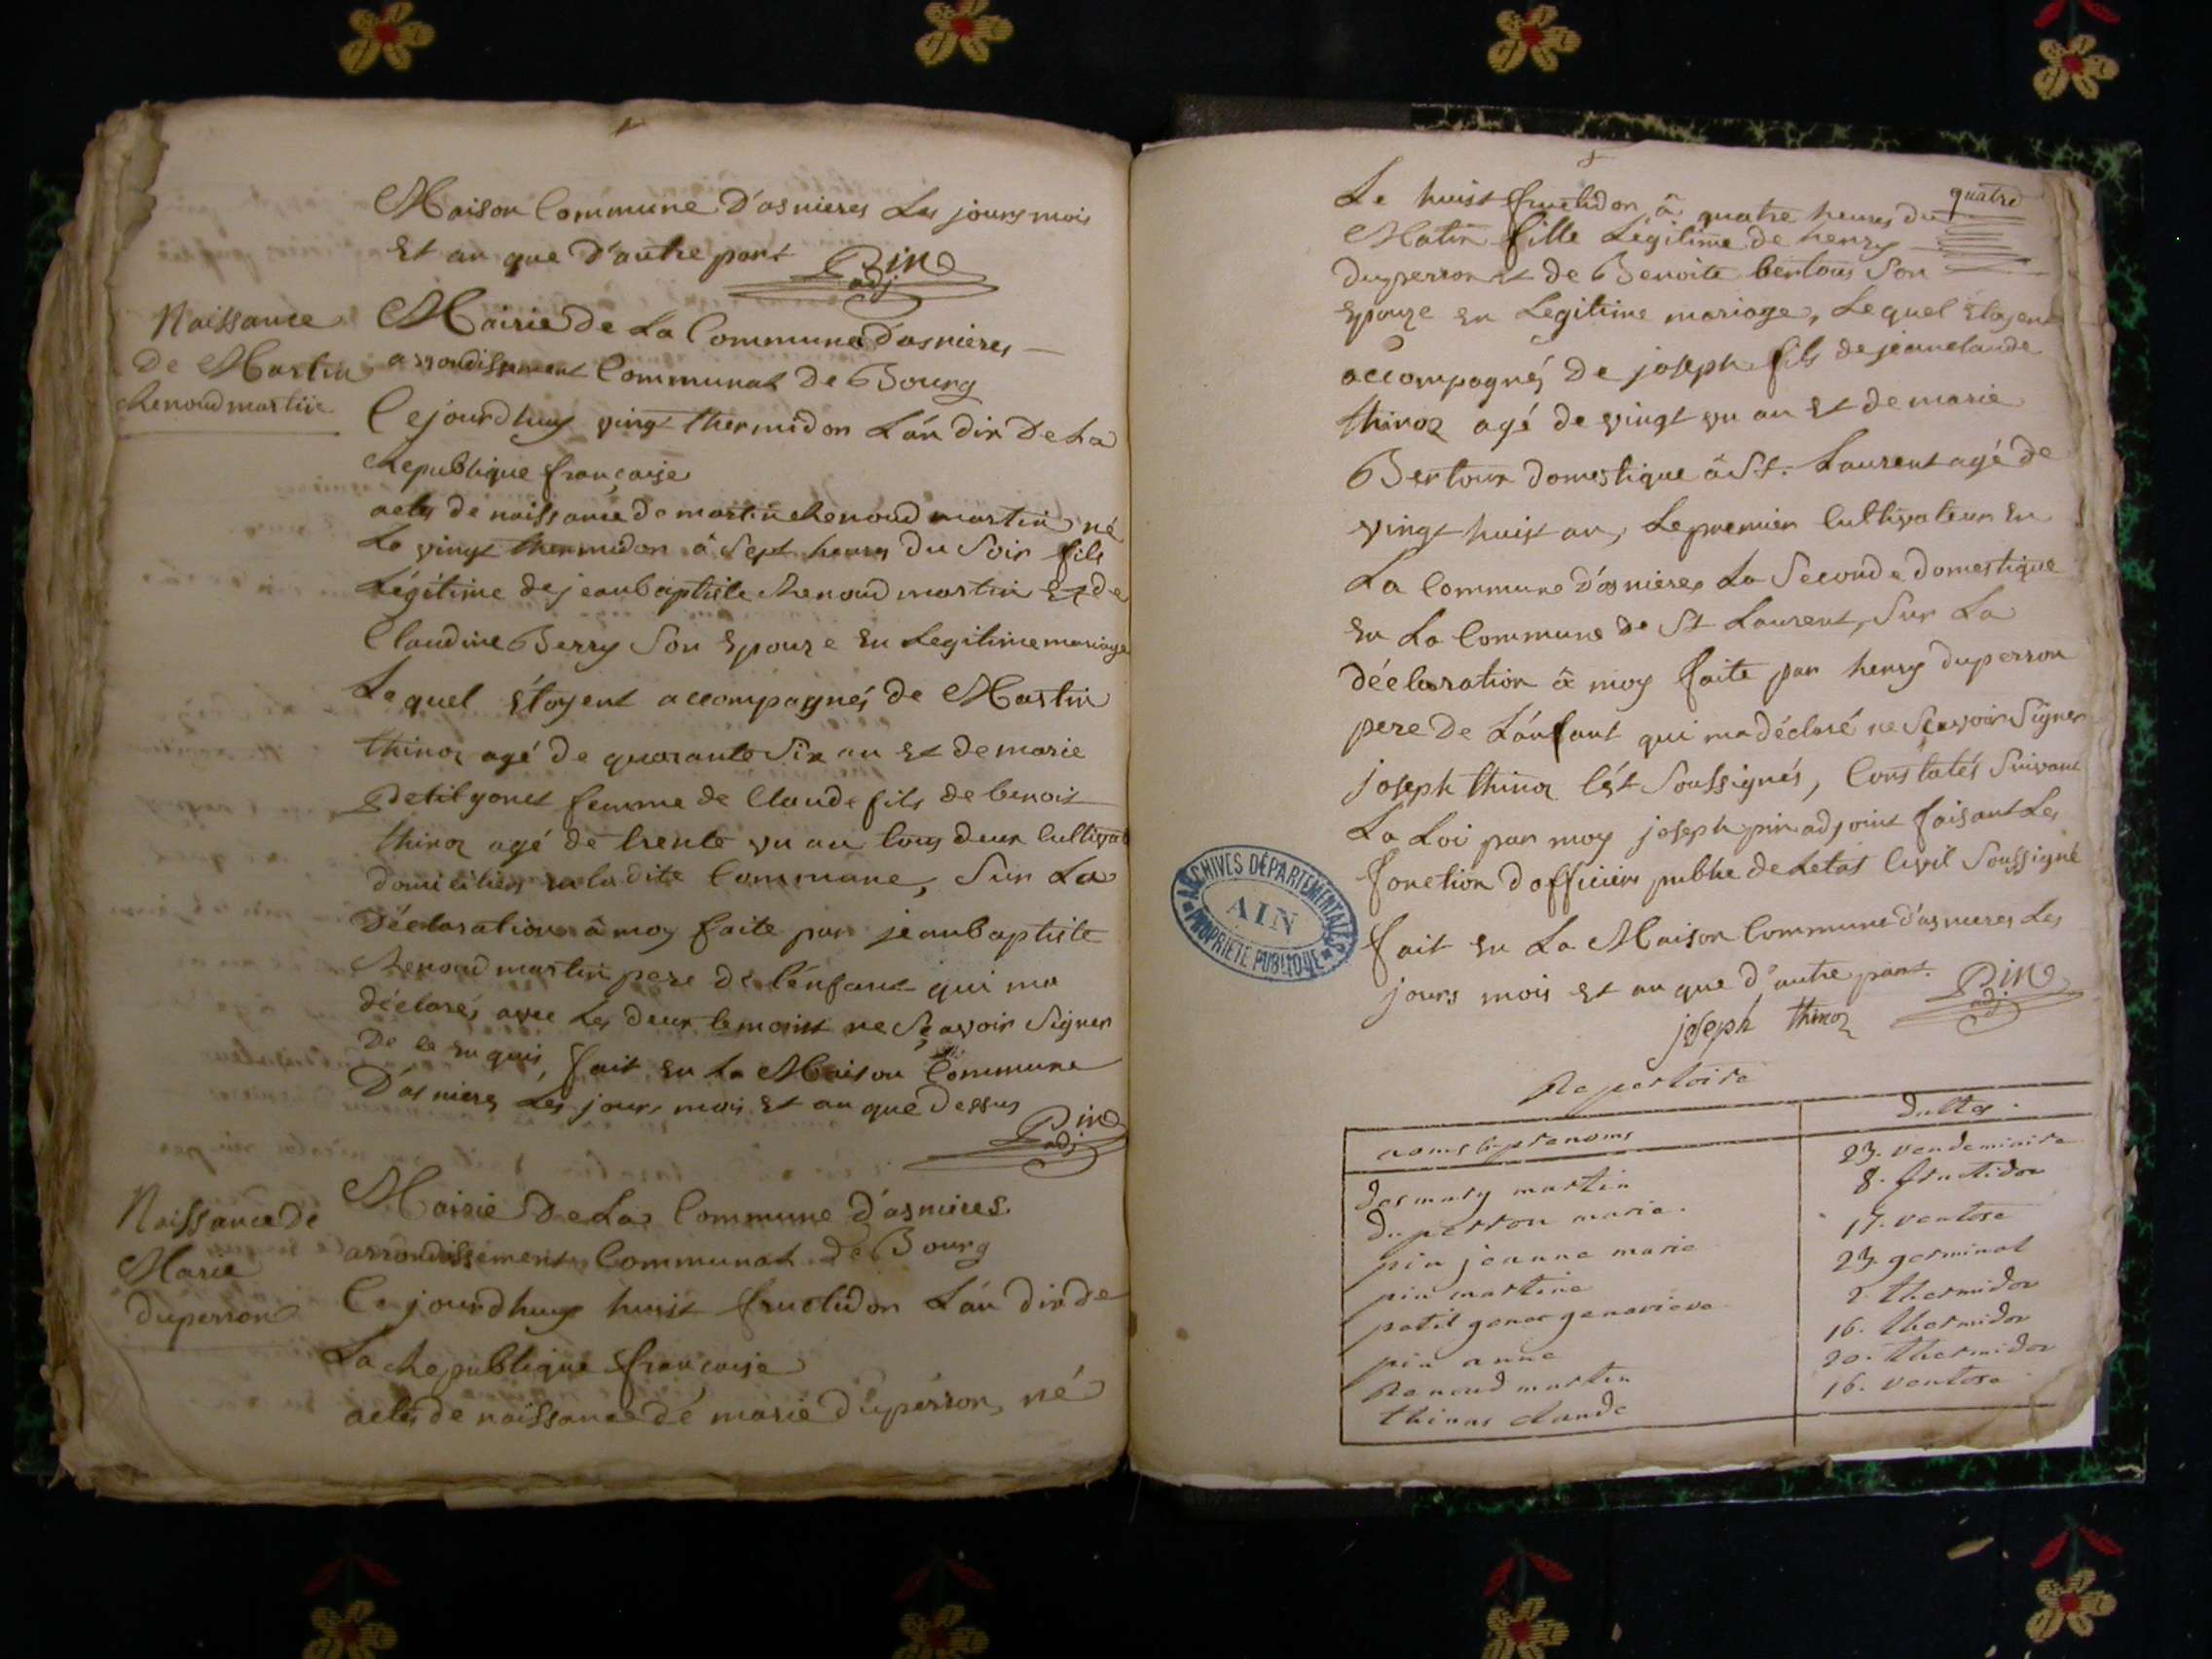 Maison Commune D'asnieres Les jours mois
Et an que D'autre part Pin
adj
Naissance
De Martin
Renoud martin
Mairie de La Commune d'asnieres
arrondissement Communal de Bourg
Cejourdhuy vingt thermidor L'an dix De La
Republique françoise
acte de naissance de martin Renoud martin né
Le vingt thermidor à Sept heures du Soir fils
Légitime de jeanbaptiste Renoud martin Et de
Claudine Berry Son Epouze En Legitime mariage
Lequel Étoyent accompagnés de Martin
thinoz agé de quarante Six an Et de marie
Petit yonet femme de Claude fils de benoit
thinoz agé de trente un an tous deux Cultivat
domicilier en la dite Commune, Sur La
Déclaration à moy faite par jeanbaptiste
Renoud martin pere de l'énfant qui ma
déclarés avec Les deux temoins ne Sçavoir Signer
De ce En quis, fait En La Maison Commune
D'asnieres Les jours mois Et an que Dessus
Pin
adj
Naissance de
Marie
Duperron
Mairie De La Commune d'asnieres
arrondissement Communal de Bourg
Ce jourdhuy huist fructidor L'an dix de
La Republique françoise
acte de naissance de marie duperron, né
quatre
Le huist fructidor à quatre heures du
Matin fille Legitime de henry
duperron Et de Benoite bertour Son
Epouze En Legitime mariage, Lequel Etoyent
accompagnés De joseph fils de jeanclaude
thinoz agé de vingt un an Et de marie
Bertour domestique à St. Laurent agé de
vingt huist an, Le premier Cultivateur En
La Commune D'asnieres La Seconde domestique
En La Commune de St Laurent, Sur La
déclaration à moy faite par henry duperron
pere De L'anfant qui ma déclaré ne Scavoir Signer
joseph thinoz lést Soussignés, Constatés Suivant
La Loi par moy joseph pin adjoint faisant Les
fonction dofficier publie de Letat Civil Soussigné
fait En La Maison Commune d'asnieres Les
jours mois Et an que d'autre part. Pin
adj
joseph thinoz
Repertoire
noms & prenoms dattes.
dermary martin 23. vendemiaire
du perron marie. 8. fructidor
pin jeanne marie 17. ventose
pin martine 23. germinal
petit gonet genevieve 2. thermidor
pin anne 16. thermidor
Renoud martin 20. thermidor
thinas claude 16. ventose
ARCHIVES DÉPARTEMENTALES
AIN
PROPRIETE PUBLIQUE